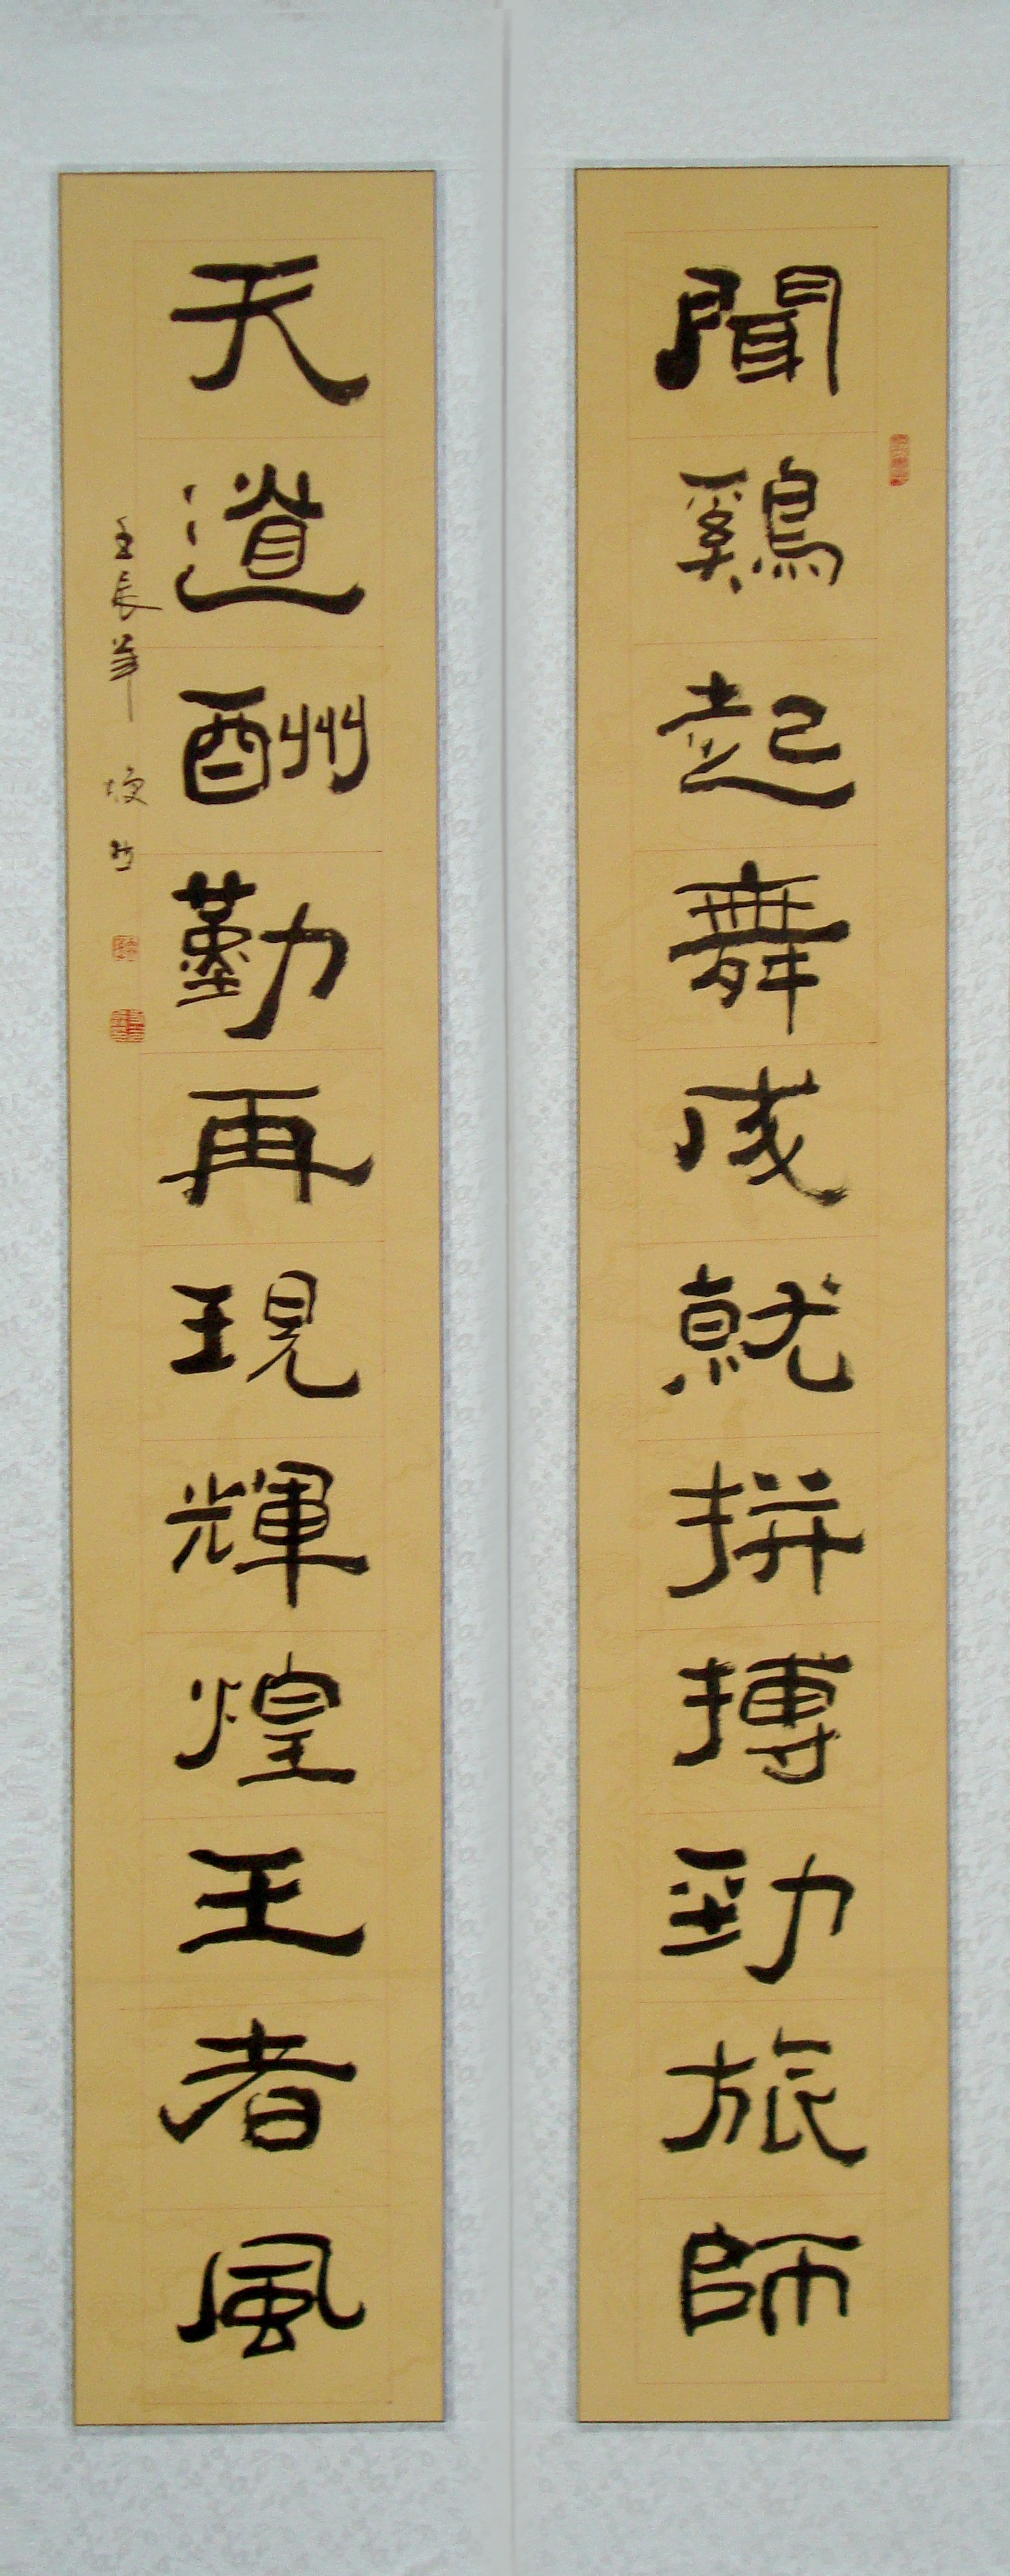 聞鷄起舞成就拼搏勁旅師
天道酬勤再現輝煌王者風
壬辰年